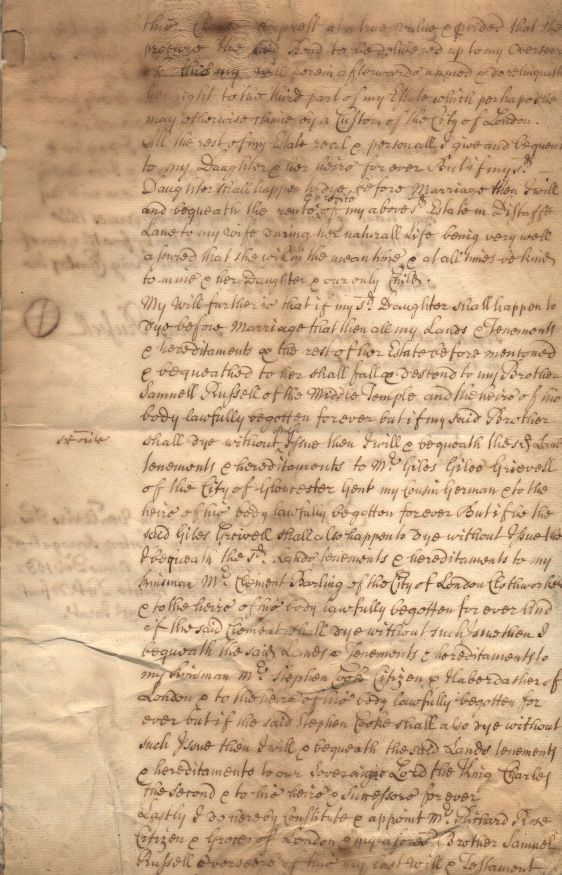 this exprest at a true value & provided that she
procure the said Bond to be delivered up to my Overseer
of this my Will herein afterwards named & do relinquish
her right to the third part of my Estate which perhaps she
may otherwise claime by a Custom of the City of London.
All the rest of my Estate real & personall I give and bequeath
to my Daughter & her heirs for ever But if my sd.
Daughter shall happen to dye before Marriage then I will
and bequeath the rents & profits of my abovesd. Estate in Distaffe
Lane to my Wife during her naturall Life being very well
assured that she will in the mean time & at all times be kind
to mine & her Daughter & our only Child.
My Will further is that if my sd. Daughter shall happen to
dye before Marriage that then all my Lands & Tenements
& hereditaments & the rest of her Estate before mentioned
& bequeathed to her shall fall & Descend to my Brother
Samuell Russell of the Middle Temple and the heirs of his
body lawfully begotten for ever but if my said Brother
shall Dye without such Issue then I will & bequeath the sd. Lands
tenements & hereditaments to Mr. Giles Giles Grevell
of the City of Gloucester Gent my Cusin German & to the
heirs of his body lawfully begotten for ever But if he the
said Giles Grevell shall also happen to dye without Issue then
I bequeath the sd. Lands tenements & hereditaments to my
kinsman Mr. Clement of the City of London Clothworker
& to the heirs of his body lawfully begotten for ever And
if the said Clement shall Dye without such Issue then I
bequeath the said Lands & Tenements & hereditaments to
my kinsman Mr. Stephen Cooke Citizen & Haberdasher of
London & to the heirs of his body lawfully begotten for
ever but if the said Stephen Cooke shall also dye without
such Issue then I will & bequeath the said Lands tenements
& hereditaments to our Soveraigne Lord the King Charles
the second & to his heirs & Successors for ever
Lastly I do hereby constitute & appoint Mr. Richard Rose
Citizen & Grocer of London & my aforesd. Brother Samuel
Russell Overseers of this my last Will & Testament